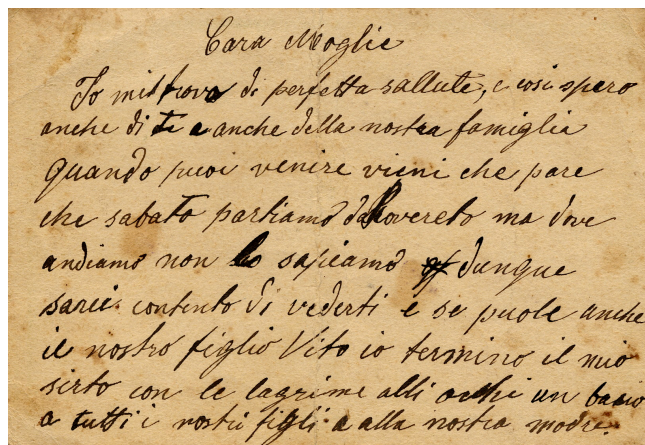 Cara Moglie
Io mi trovo di perfetta sallute, e cosi spero
anche di te e anche della nostra famiglia
quando puoi venire vieni che pare
che sabato partiamo da Rovereto ma dove
andiamo non lo sapiamo dunque
sarei contento di vederti e se puole anche
il nostro figlio Vito io termino il mio
sirto con le lagrime alli occhi un bacio
a tutti i nostri figli e alla nostra madre.